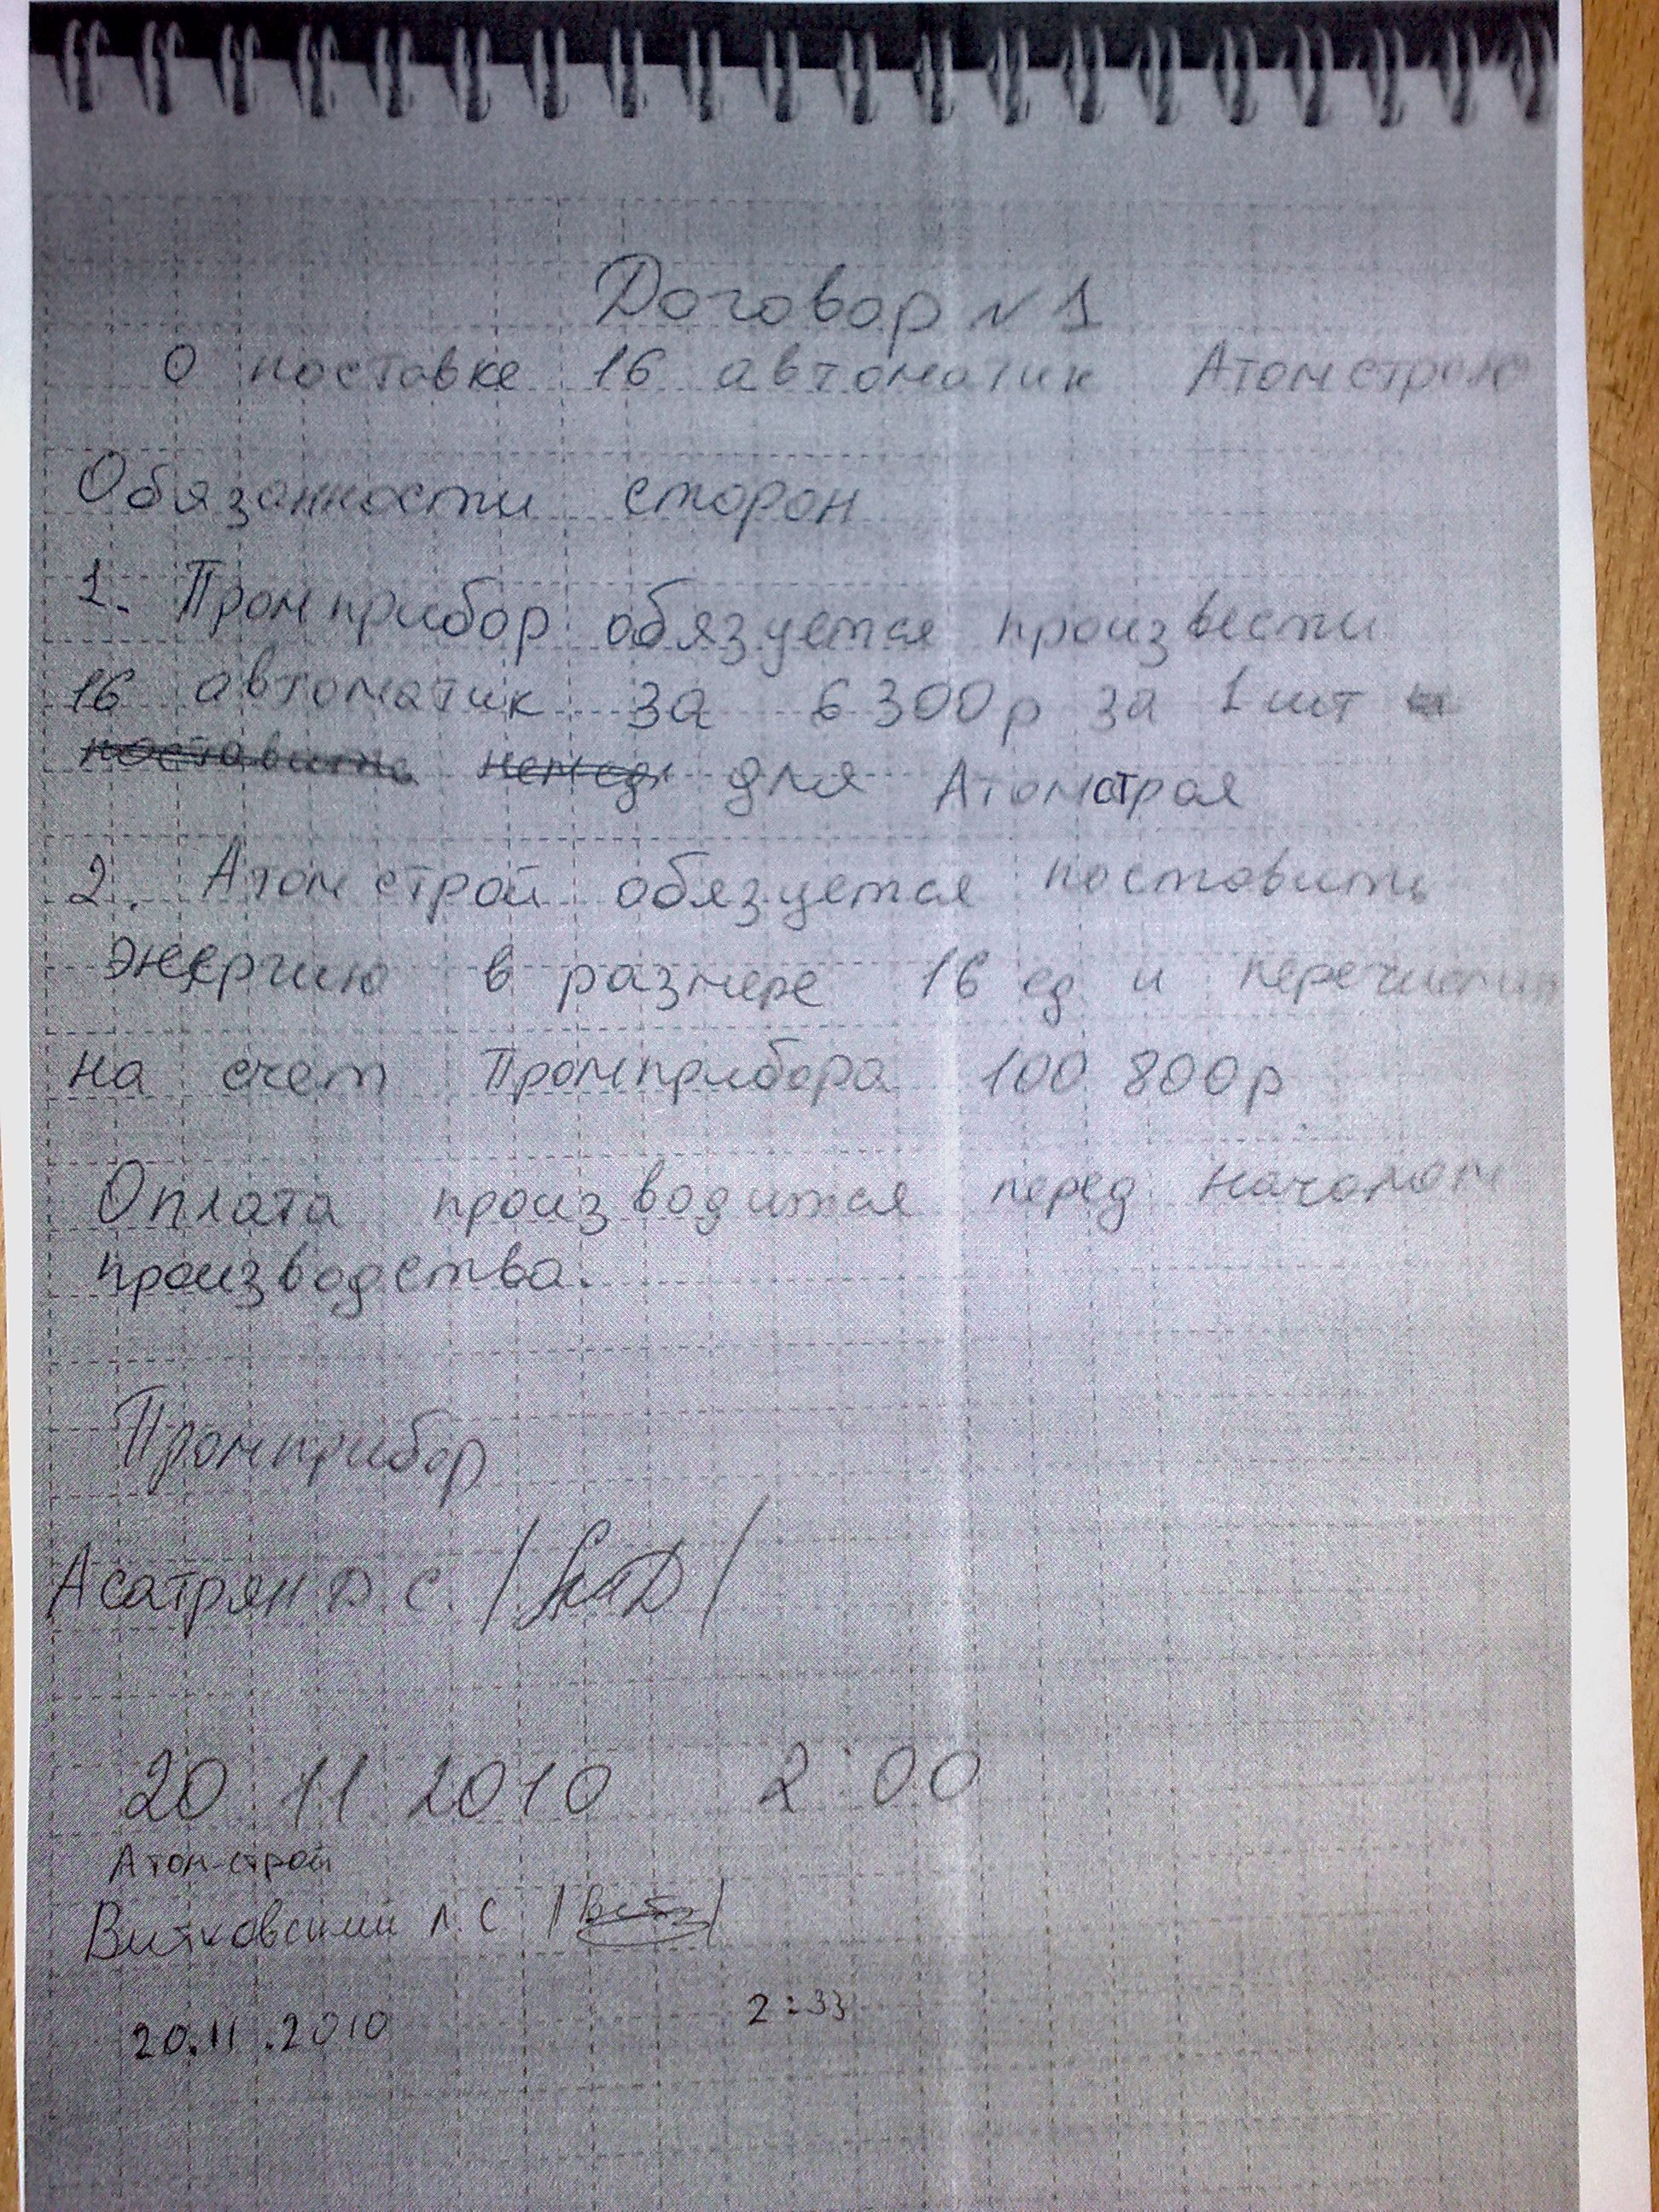 Договор № 1
О поставке 16 автоматик Атомстрою
Обязанности сторон
1. Промприбор обязуется произвести
16 автоматик за 6300р за 1 шт
поставить для Атомстроя
2. Атомстрой обязуется поставить
энергию в размере 16 ед и перечислить
на счет Промприбора 100 800р
Оплата производится перед началом
производства.
Промприбор
Асатрян Д. С. / /
20 11 2010 2:00
Атом-строй
Витковский Л.С / /
20.11.2010 2:33